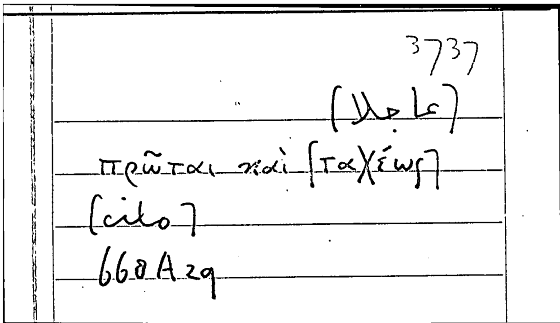 3737
[عاجلا]
πρῶται καὶ [ταχέως]
[cito]
660A29